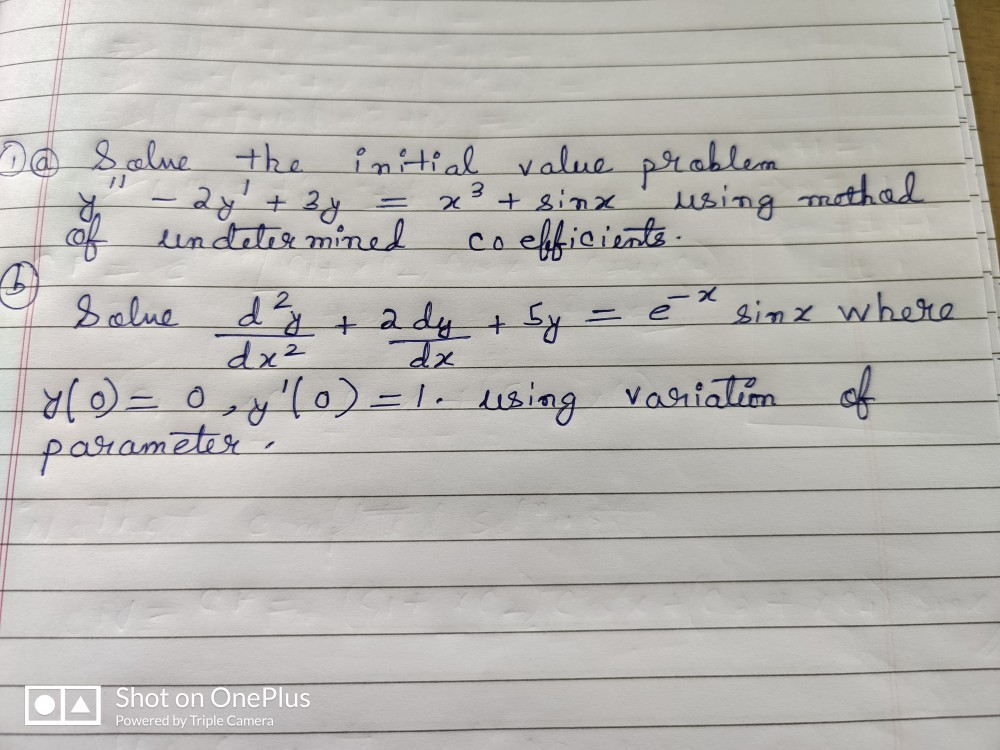 1) a) Solve the initial value problem
y'' - 2y' + 3y = x³ + sinx using method
of undetermined coefficients.
b)
Solve d²y/dx² + 2dy/dx + 5y = e⁻ˣ sinx where
y(0) = 0, y'(0) = 1. using variation of
parameter.
Shot on OnePlus
Powered by Triple Camera